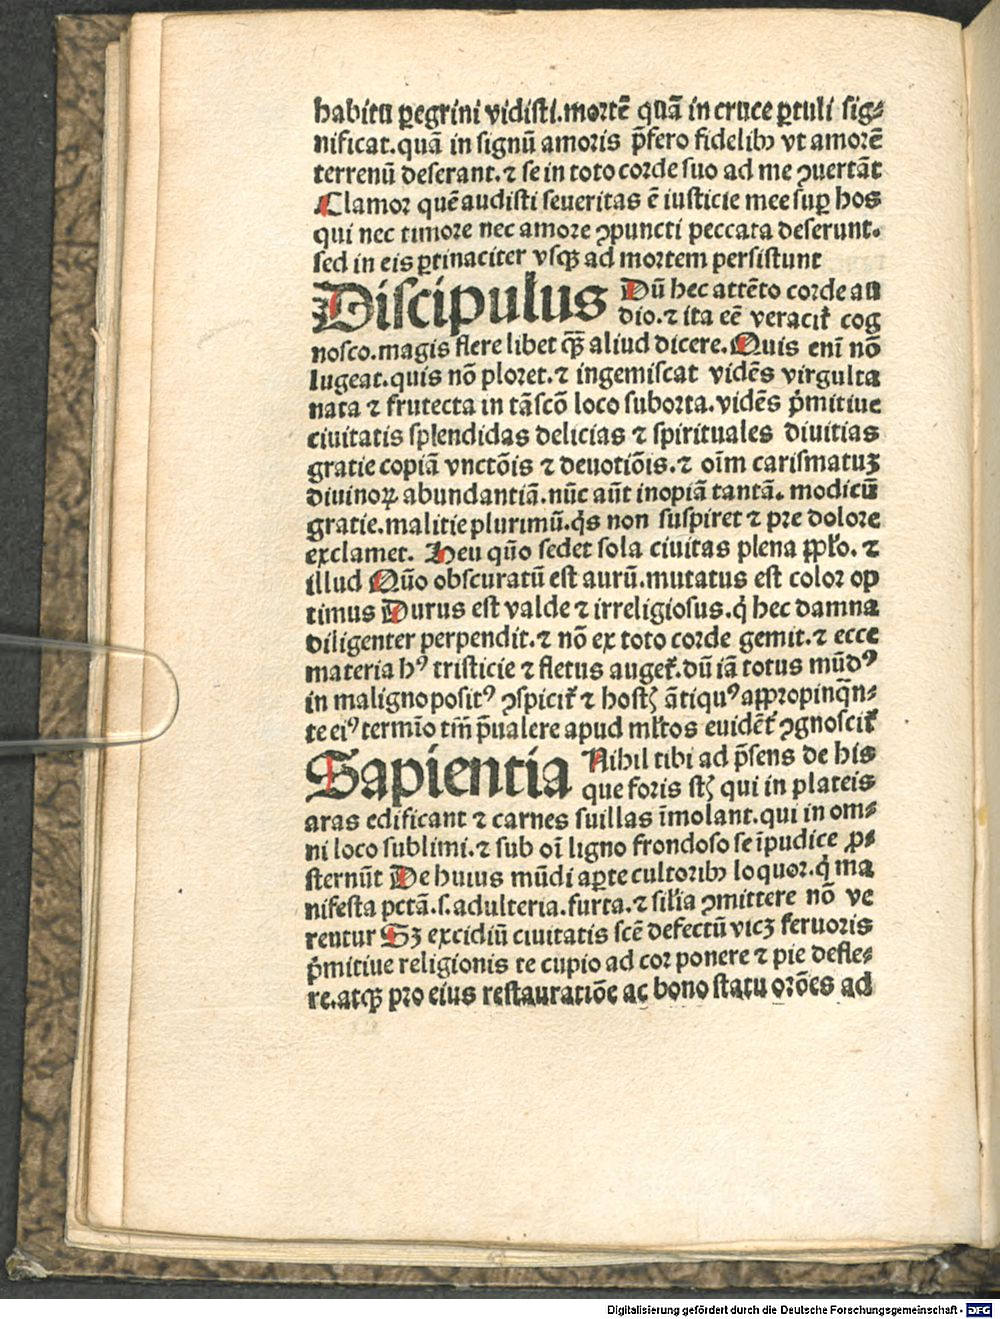 habitu ꝑegrini vidisti.mortē quā in cruce ꝑtuli sig⸗
nificat.quā in signū amoris p̄fero fidelibꝫ vt amorē
terrenū deserant.⁊ se in toto corde suo ad me ꝯuertāt
Clamor quē audisti seueritas ē iusticie mee suꝑ hos
qui nec timore nec amore ꝯpuncti peccata deserunt.
sed in eis ꝑtinaciter vsqꝫ ad mortem persistunt
Discipulus Dū hec attēto corde au
dio.⁊ ita eē veracit᷑ cog
nosco.magis flere libet qꝫ̄ aliud dicere.Quis enī nō
lugeat.quis nō ploret.⁊ ingemiscat vidēs virgulta
nata ⁊ frutecta in tā scō loco suborta.vidēs p̄mitiue
ciuitatis splendidas delicias ⁊ spirituales diuitias
gratie copiā vnctōis ⁊ deuotiōis.⁊ oīm carismatuꝫ
diuinoꝝ abundantiā.nūc aūt inopiā tantā. modicū
gratie.malitie plurimū.q̇s non suspiret ⁊ pre dolore
exclamet. Heu quō sedet sola ciuitas plena pp̄lo. ⁊
illud Quō obscuratū est aurū.mutatus est color op
timus Durus est valde ⁊ irreligiosus.q̇ hec damna
diligenter perpendit.⁊ nō ex toto corde gemit.⁊ ecce
materia hꝰ tristicie ⁊ fletus auget᷑.dū iā totus mūdꝰ
in maligno positꝰ ꝯspicit᷑ ⁊ hostꝭ ātiquꝰ appropinq̄n⸗
te eiꝰ termīo tm̄ p̄ualere apud ml̄tos euidēt᷑ ꝯgnoscit᷑
Sapientia Nihil tibi ad p̄sens de his
que foris stꝭ qui in plateis
aras edificant ⁊ carnes suillas īmolant.qui in om⸗
ni loco sublimi.⁊ sub oī ligno frondoso se īpudice ꝓ⸗
sternūt De huius mūdi aꝑte cultoribꝫ loquor.q̇ ma
nifesta pctā.s.adulteria.furta.⁊ sil̄ia ꝯmittere nō ve
rentur Sꝫ excidiū ciuitatis scē defectū vicꝫ feruoris
p̄mitiue religionis te cupio ad cor ponere ⁊ pie defle⸗
re.atqꝫ pro eius restauratiōe ac bono statu orōes ad
Digitalisierung gefördert durch die Deutsche Forschungsgemeinschaft - DFG